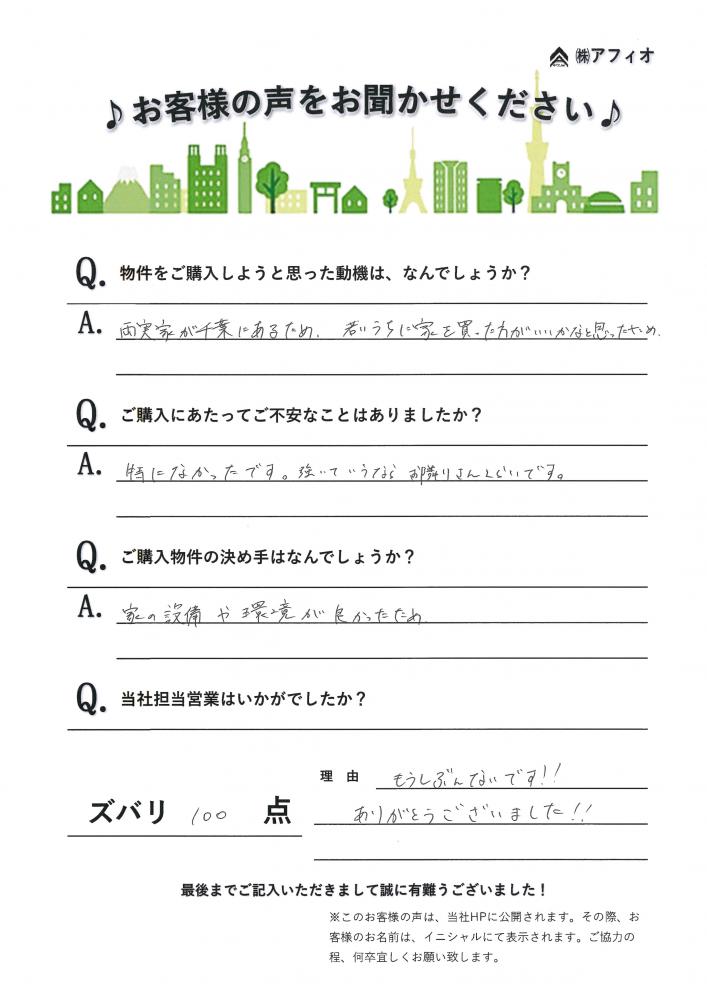 ㈱アフィオ
♪お客様の声をお聞かせください♪
Q. 物件をご購入しようと思った動機は、なんでしょうか？
A. 両実家が千葉にあるため. 若いうちに家を買った方がいいかなと思ったため.
Q. ご購入にあたってご不安なことはありましたか？
A. 特になかったです。強いていうなら お隣りさんくらいです。
Q. ご購入物件の決め手はなんでしょうか？
A. 家の設備や環境が良かったため
Q. 当社担当営業はいかがでしたか？
理由 もうしぶんないです!!
ズバリ 100 点
ありがとうございました!!
最後までご記入いただきまして誠に有難うございました！
※このお客様の声は、当社HPに公開されます。その際、お
客様のお名前は、イニシャルにて表示されます。ご協力の
程、何卒宜しくお願い致します。